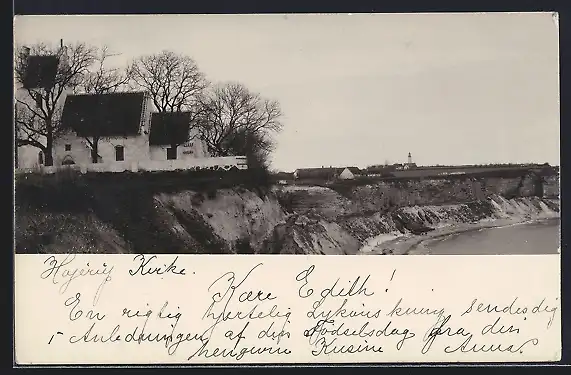 Højerup Kirke.
Kære Edith!
En rigtig hjertelig Lykønskning sendes dig
i Anledningen af din Fødselsdag fra din
hengivne Kusine Anna.